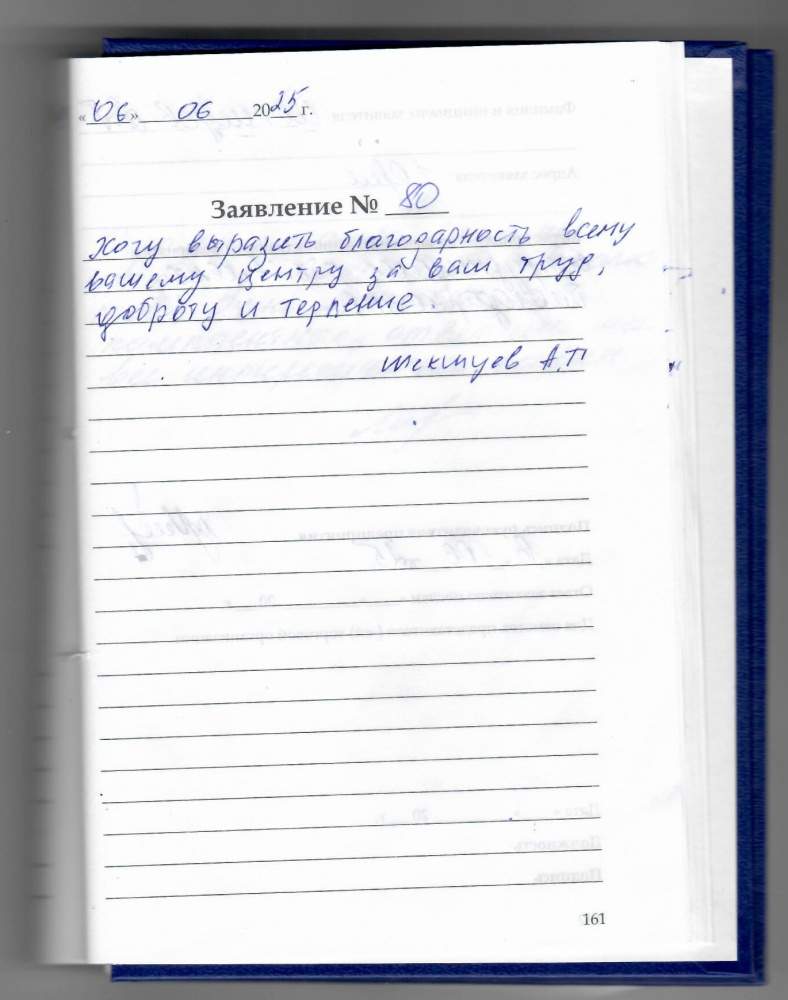 «06» 06 2025 г.
Заявление № 80
Хочу выразить благодарность всему
вашему центру за ваш труд,
доброту и терпение.
А.П
161